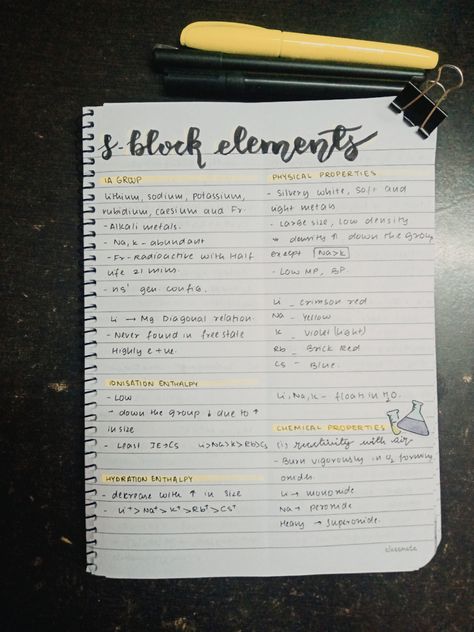 s-block elements
IA GROUP
Lithium, sodium, potassium,
rubidium, caesium and Fr
- Alkali metals.
- Na, K - abundant
- Fr - Radioactive with Half
life 21 mins.
- ns¹ gen config.
Li → Mg Diagonal relation.
- Never found in free state
Highly e+ve.
IONISATION ENTHALPY
- Low
- down the group ↓ due to ↑
in size
- Least IE→Cs Li>Na>K>Rb>Cs
HYDRATION ENTHALPY
- decrease with ↑ in size
- Li⁺>Na⁺>K⁺>Rb⁺>Cs⁺
PHYSICAL PROPERTIES
- Silvery white, soft and
light metals
- Large size, low density
density ↑ down the group
except Na>K
- Low MP, BP.
Li - crimson red
Na - Yellow
K - Violet (light)
Rb - Brick Red
Cs - Blue.
Li, Na, K - float in H₂O.
CHEMICAL PROPERTIES
(i) reactivity with air
- Burn vigorously in O₂ forming
oxides.
Li → monoxide
Na → peroxide
Heavy → superoxide.
classmate